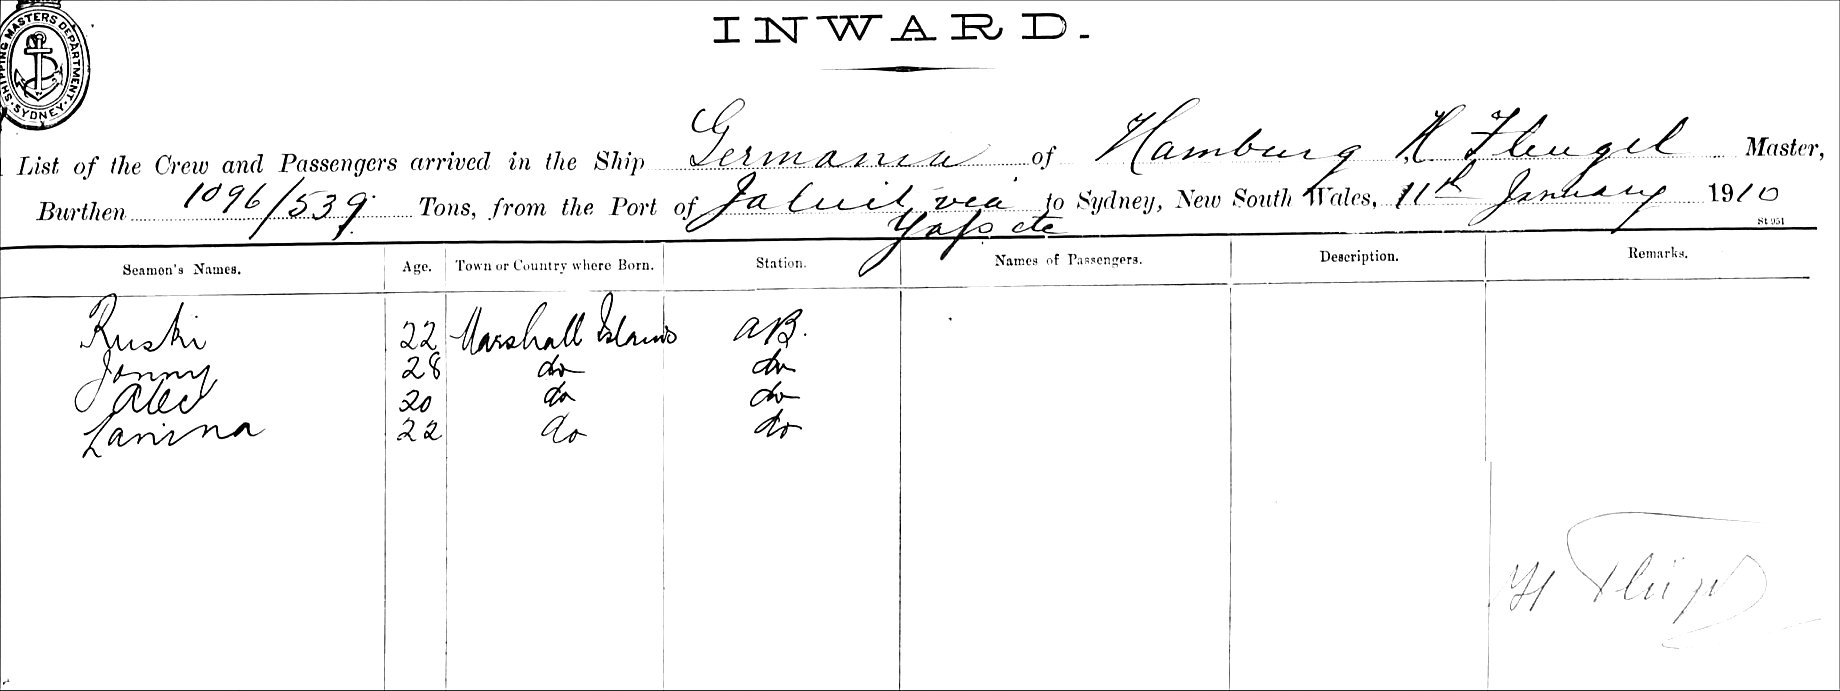 SHIPPING MASTERS DEPARTMENT. SYDNEY
INWARD.
List of the Crew and Passengers arrived in the Ship Germania of Hamburg H. Fleugel Master,
Burthen 1096/539. Tons, from the Port of Jaluit via to Sydney, New South Wales, 11th January 1910
Yap etc
St 951
Seamen's Names. Age. Town or Country where Born. Station. Names of Passengers. Description. Remarks.
Ruski 22 Marshall Islands AB.
Jonny 28 do do
Alec 20 do do
Lanina 22 do do
H